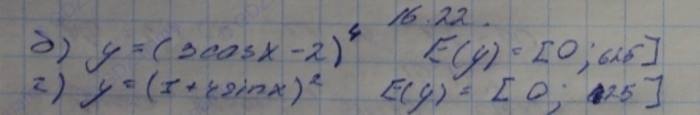 16.22.
б) y = (3cosx - 2)⁴ E(y) = [0; 625]
г) y = (1 + 4sinx)² E(y) = [0; 25]